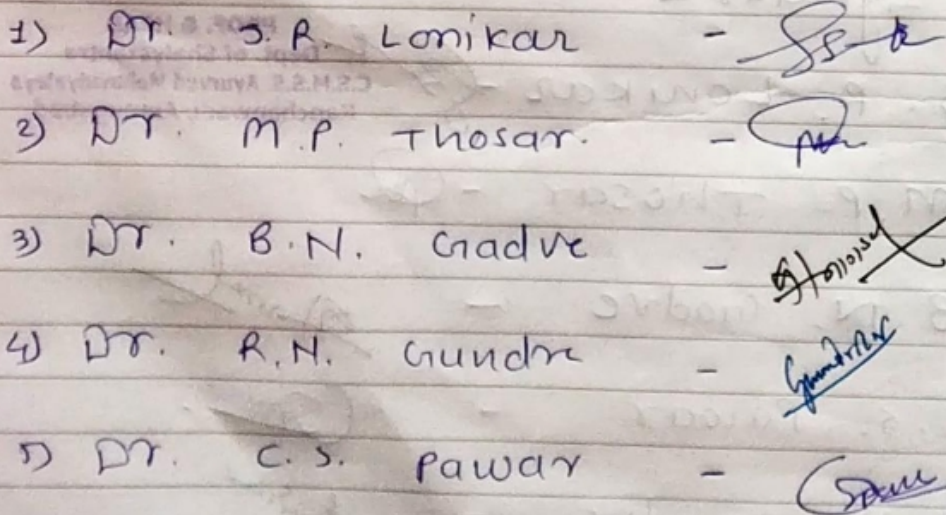 1) Dr. S.R. Lonikar -
2) Dr. M.P. Thosar. -
3) Dr. B.N. Gadve -
4) Dr. R.N. Gundre -
5) Dr. C.S. Pawar -